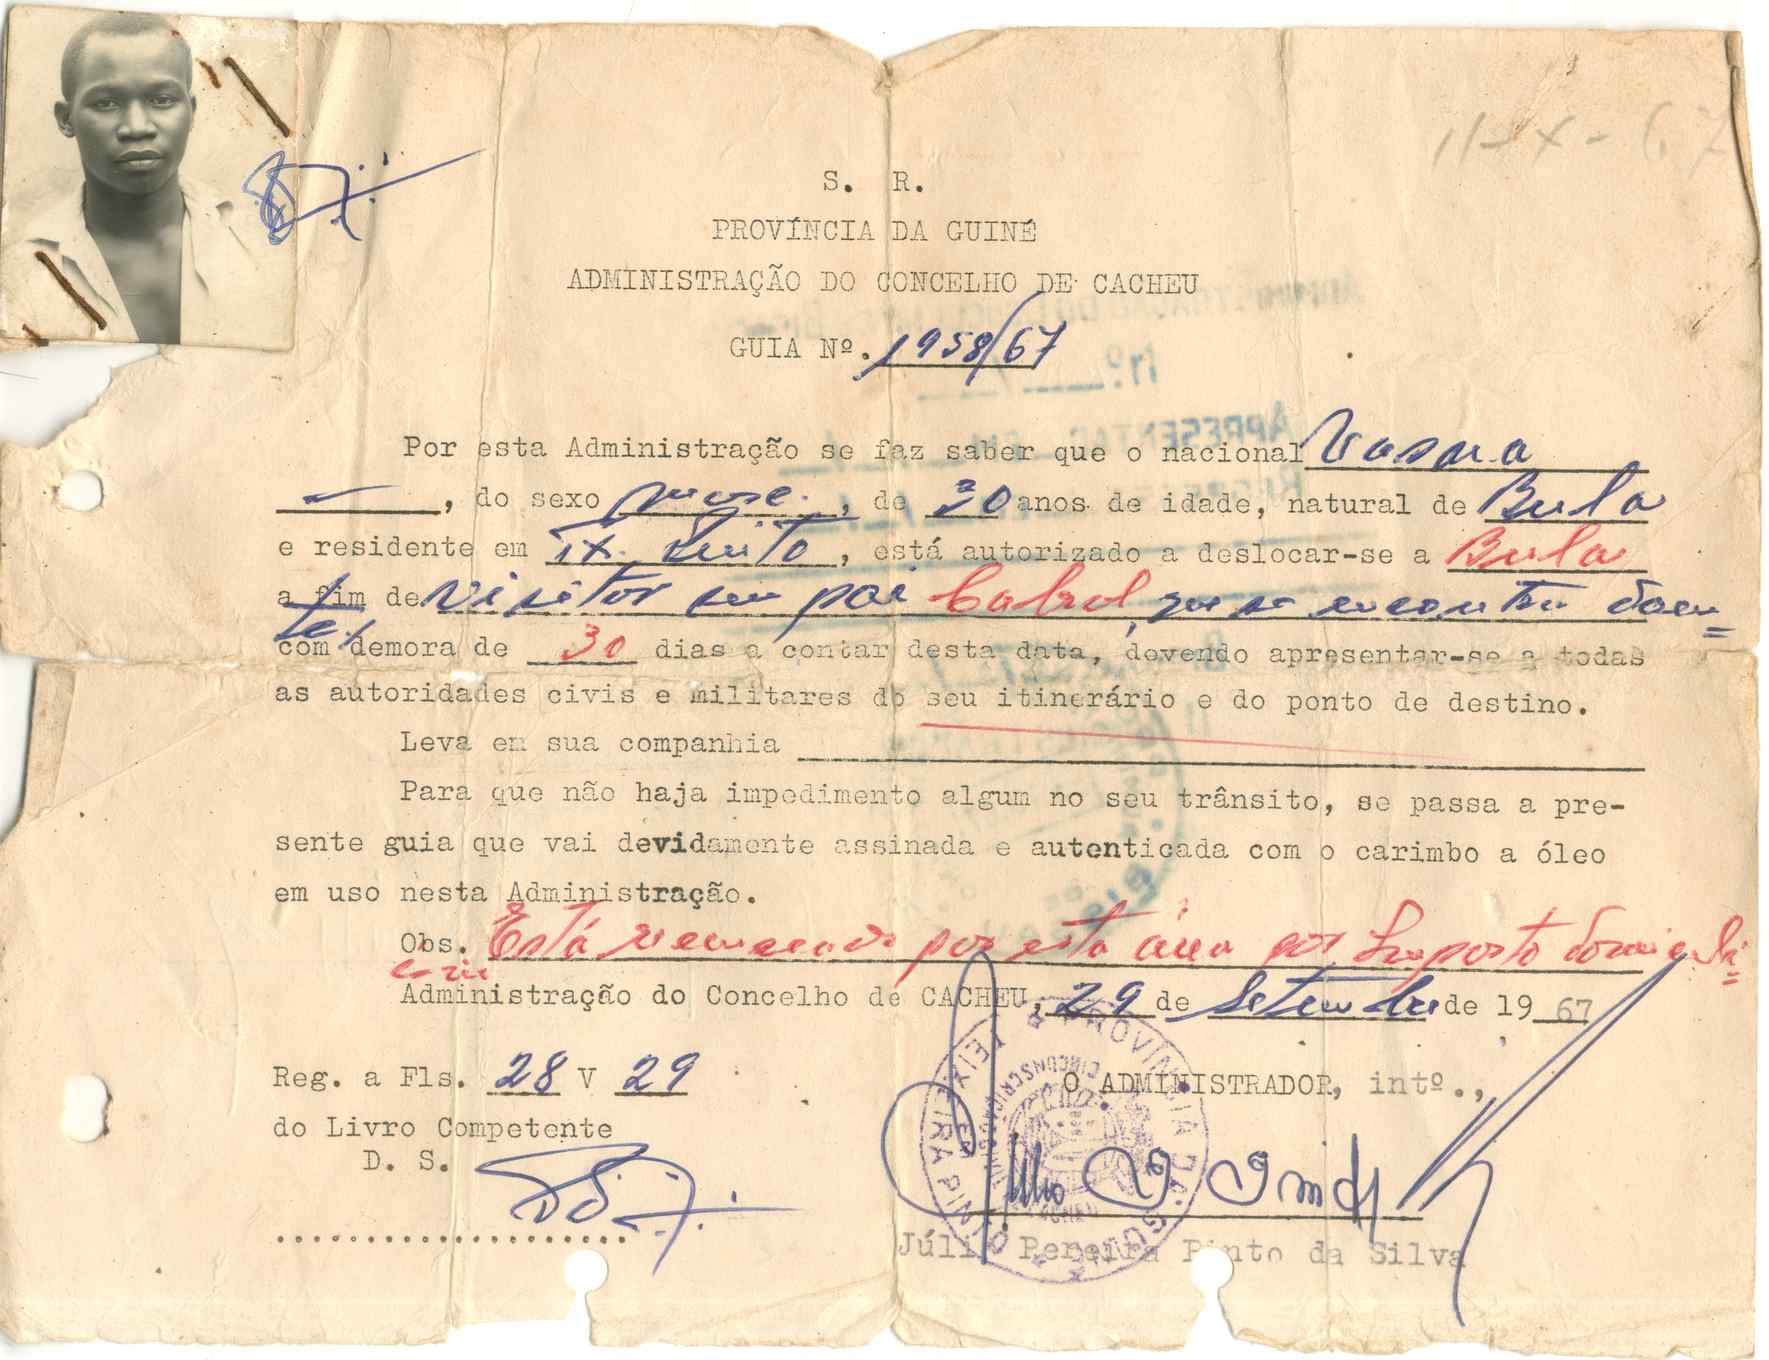 11-X-67
S. R.
PROVÍNCIA DA GUINÉ
ADMINISTRAÇÃO DO CONCELHO DE CACHEU
GUIA Nº. 1958/67
Por esta Administração se faz saber que o nacional
, do sexo masc., de 30 anos de idade, natural de Bula
e residente em , está autorizado a deslocar-se a Bula
a fim de visitar seu pai Cabral, que se encontra doen=
te,
com demora de 30 dias a contar desta data, devendo apresentar-se a todas
as autoridades civis e militares do seu itinerário e do ponto de destino.
Leva em sua companhia
Para que não haja impedimento algum no seu trânsito, se passa a pre-
sente guia que vai devidamente assinada e autenticada com o carimbo a óleo
em uso nesta Administração.
Obs. Está recenseado por esta área por Imposto domicili=
ário
Administração do Concelho de CACHEU, 29 de Setembro de 1967
Reg. a Fls. 28 V 29
O ADMINISTRADOR, intº.,
do Livro Competente
D. S.
Júlio Pereira Pinto da Silva
PROVÍNCIA DA GUINÉ
TEIXEIRA PINTO
CACHEU